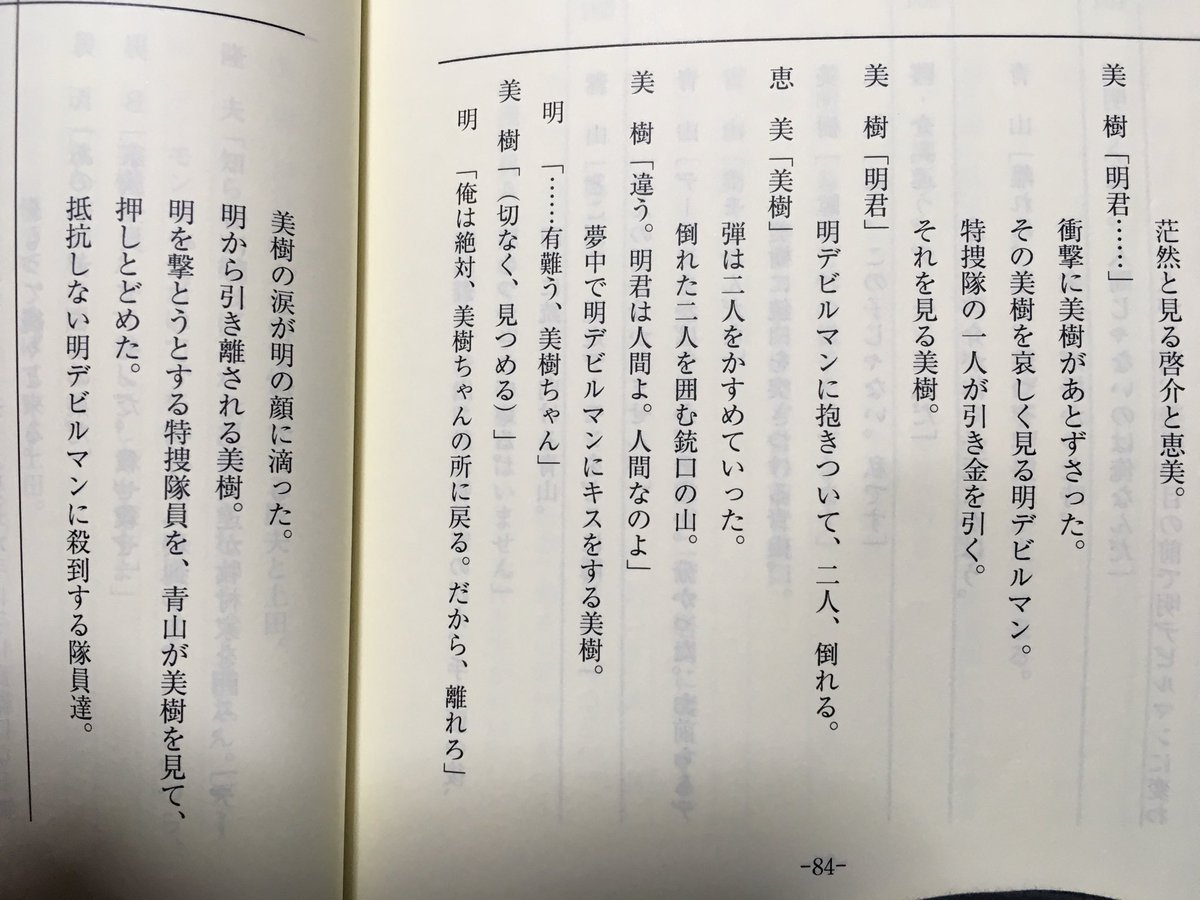 茫然と見る啓介と恵美。
美　樹「明君……」
衝撃に美樹があとずさった。
その美樹を哀しく見る明デビルマン。
特捜隊の一人が引き金を引く。
それを見る美樹。
美　樹「明君」
明デビルマンに抱きついて、二人、倒れる。
恵　美「美樹」
弾は二人をかすめていった。
倒れた二人を囲む銃口の山。
美　樹「違う。明君は人間よ。人間なのよ」
夢中で明デビルマンにキスをする美樹。
明　「……有難う、美樹ちゃん」
美　樹「（切なく、見つめる）」
明　「俺は絶対、美樹ちゃんの所に戻る。だから、離れろ」
-84-
美樹の涙が明の顔に滴った。
明から引き離される美樹。
明を撃とうとする特捜隊員を、青山が美樹を見て、
押しとどめた。
抵抗しない明デビルマンに殺到する隊員達。